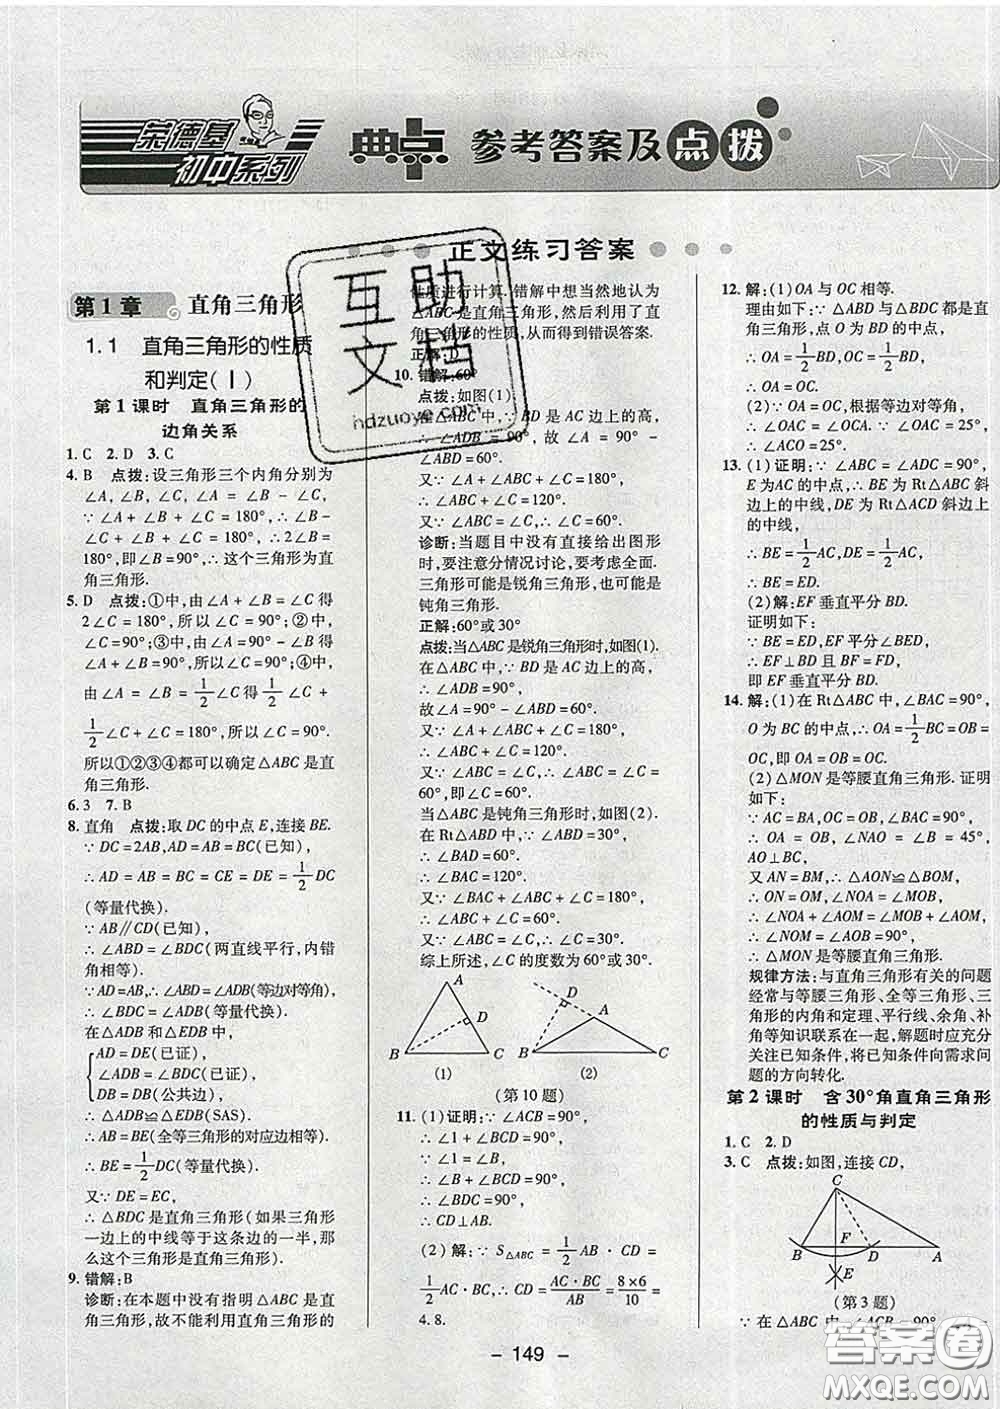 荣德基
初中系列
典点 参考答案及点拨
正文练习答案
第1章 直角三角形
1.1 直角三角形的性质
和判定(Ⅰ)
第1课时 直角三角形的
边角关系
1. C 2. D 3. C
4. B 点拨:设三角形三个内角分别为
∠A, ∠B, ∠C, ∠A + ∠B = ∠C,
∵ ∠A + ∠B + ∠C = 180°, ∴ ∠B +
∠A + ∠C = 180°, ∴ 2∠B =
180°,即∠B = 90°. ∴ 这个三角形为直
角三角形.
5. D 点拨:①中,由∠A + ∠B = ∠C得
2∠C = 180°,所以∠C = 90°;②中,
∠C = 90°;③中,由∠A = 90° - ∠B得
∠A + ∠B = 90°,所以∠C = 90°;④中,
由∠A = ∠B = 1/2∠C得1/2∠C +
1/2∠C + ∠C = 180°,所以∠C = 90°.
所以①②③④都可以确定△ABC是直
角三角形.
6. 3 7. B
8. 直角 点拨:取DC的中点E,连接BE.
∵ DC = 2AB, AD = AB(已知),
∴ AD = AB = CE = DE = 1/2 DC
(等量代换).
∵ AB∥CD(已知),
∴ ∠ABD = ∠BDC(两直线平行,内错
角相等).
∵ AD = AB, ∴ ∠ABD = ∠ADB(等边对等角),
∴ ∠ADB = ∠BDC(等量代换).
在△ADB和△EDB中,
AD = DE(已证),
∠ADB = ∠BDC(已证),
DB = DB(公共边),
∴ △ADB≌△EDB(SAS).
∴ AB = BE(全等三角形的对应边相等).
∴ BE = 1/2 DC(等量代换).
又∵ DE = EC,
∴ △BDC是直角三角形(如果三角形
一边上的中线等于这条边的一半,那
么这个三角形是直角三角形).
9. 错解:B
诊断:在本题中没有指明△ABC是直
角三角形,故不能利用直角三角形的
性质进行计算. 错解中想当然地认为
△ABC是直角三角形,然后利用了直
角三角形的性质,从而得到错误答案.
正解:D
10. 错解:60°
点拨:如图(1),
在△ABC中, ∵ BD是AC边上的高,
∴ ∠ADB = 90°,故∠A = 90° -
∠ABD = 60°.
又∵ ∠ABC + ∠A + ∠C = 180°,
∴ ∠ABC + ∠C = 120°.
又∵ ∠ABC = ∠C, ∴ ∠C = 60°.
诊断:当题目中没有直接给出图形
时,要注意分情况讨论,要考虑全面.
三角形可能是锐角三角形,也可能是
钝角三角形.
正解:60°或30°
点拨:当△ABC是锐角三角形时,如图(1).
在△ABC中, ∵ BD是AC边上的高,
∴ ∠ADB = 90°.
故∠A = 90° - ∠ABD = 60°.
又∵ ∠ABC + ∠A + ∠C = 180°,
∴ ∠ABC + ∠C = 120°.
又∵ ∠ABC = ∠C, ∴ ∠ABC = ∠C =
60°,即∠C = 60°.
当△ABC是钝角三角形时,如图(2).
在Rt△ABD中, ∵ ∠ABD = 30°,
∴ ∠BAD = 60°.
∴ ∠BAC = 120°.
又∵ ∠BAC + ∠ABC + ∠C = 180°,
∴ ∠ABC + ∠C = 60°.
又∵ ∠ABC = ∠C, ∴ ∠C = 30°.
综上所述, ∠C的度数为60°或30°.
A D B C
(1)
D A B C
(2)
(第10题)
11. (1)证明: ∵ ∠ACB = 90°,
∴ ∠1 + ∠BCD = 90°,
∵ ∠1 = ∠B,
∴ ∠B + ∠BCD = 90°,
∴ ∠BDC = 90°,
∴ CD⊥AB.
(2)解: ∵ S△ABC = 1/2 AB·CD =
1/2 AC·BC, ∴ CD = AC·BC/AB = 8×6/10 =
4.8.
12. 解:(1)OA与OC相等.
理由如下: ∵ △ABD与△BDC都是直
角三角形,点O为BD的中点,
∴ OA = 1/2 BD, OC = 1/2 BD,
∴ OA = OC.
(2) ∵ OA = OC,根据等边对等角,
∴ ∠OAC = ∠OCA. ∵ ∠OAC = 25°,
∴ ∠ACO = 25°.
13. (1)证明: ∵ ∠ABC = ∠ADC = 90°,
E为AC的中点, ∴ BE为Rt△ABC斜
边上的中线, DE为Rt△ACD斜边上
的中线,
∴ BE = 1/2 AC, DE = 1/2 AC,
∴ BE = ED.
(2)解: EF垂直平分BD.
证明如下:
∵ BE = ED, EF平分∠BED,
∴ EF⊥BD且EF平分BD,
即EF垂直平分BD.
14. 解:(1)在Rt△ABC中, ∠BAC = 90°,
O为BC的中点, ∴ OA = 1/2 BC = OB =
OC,即OA = OB = OC.
(2)△MON是等腰直角三角形. 证明
如下:
∵ AC = BA, OC = OB, ∠BAC = 90°,
∴ OA = OB, ∠NAO = ∠B = 45°,
AO⊥BC,
又AN = BM, ∴ △AON≌△BOM,
∴ ON = OM, ∠NOA = ∠MOB,
∴ ∠NOA + ∠AOM = ∠MOB + ∠AOM,
∴ ∠NOM = ∠AOB = 90°.
∴ △MON是等腰直角三角形.
规律方法:与直角三角形有关的问题
经常与等腰三角形、全等三角形、三
角形的内角和定理、平行线、余角、补
角等知识联系在一起,解题时应充分
关注已知条件,将已知条件向需求问
题的方向转化.
第2课时 含30°角直角三角形
的性质与判定
1. C 2. D
3. C 点拨:如图,连接CD,
C B F D A E
(第3题)
∵ 在△ABC中, ∠ACB = 90°
- 149 -
互助
文档
hdzuoye.com
答案圈
MXQE.COM